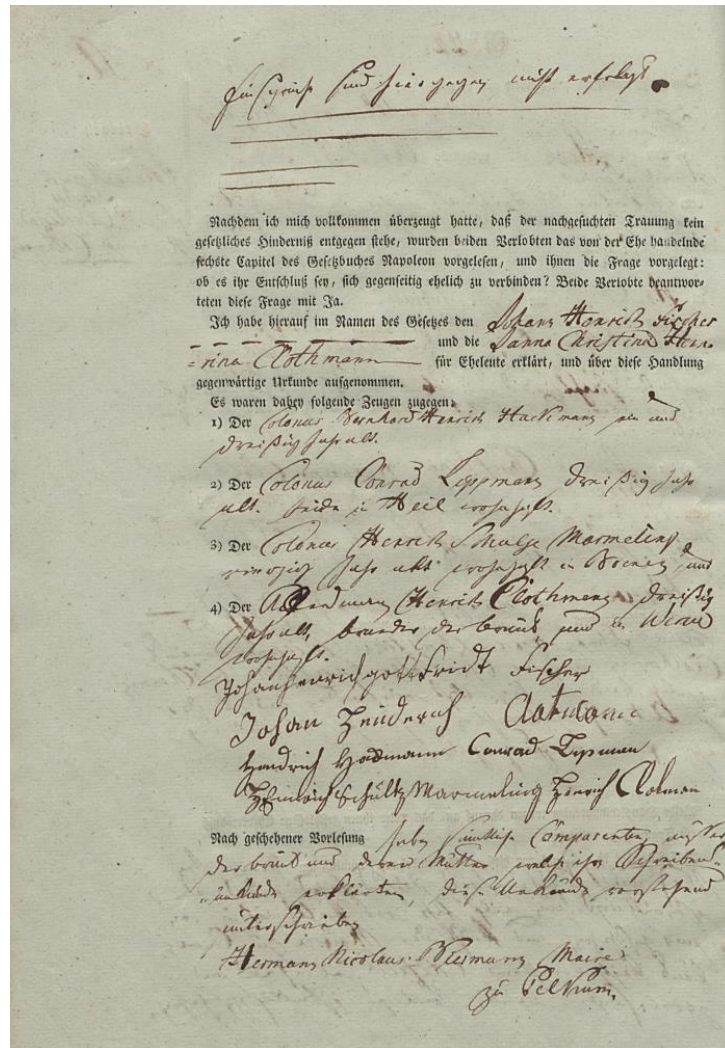 Einsprüche sind hiergegen nicht erfolgt.
Nachdem ich mich vollkommen überzeugt hatte, daß der nachgesuchten Trauung kein
gesetzliches Hinderniß entgegen stehe, wurden beiden Verlobten das von der Ehe handelnde
sechste Capitel des Gesetzbuches Napoleon vorgelesen, und ihnen die Frage vorgelegt:
ob es ihr Entschluß sey, sich gegenseitig ehelich zu verbinden? Beide Verlobte beantwor-
teten diese Frage mit Ja.
Ich habe hierauf im Namen des Gesetzes den Johann Henrich Fischer
und die Janna Christina Hen-
=rina Clothmann für Eheleute erklärt, und über diese Handlung
gegenwärtige Urkunde aufgenommen.
Es waren dabey folgende Zeugen zugegen:
1) Der Colonus Bernhard Henrich Hackmann ein und
dreißig Jahr alt.
2) Der Colonus Conrad Lippmann dreißig Jahr
alt. beide in Heil wohnhaft.
3) Der Colonus Henrich Schulze Marmeling
vierzig Jahr alt wohnhaft in und
4) Der Henrich Clothmann dreißig
Jahr alt, bruder der braut und in Werne
wohnhaft.
Johanhenrichgottfridt Fischer
Johan Henderich
Hendrich Hackmann Conrad Lipman
Heinrich Schultz Marmeling Henrich Clotman
Nach geschehener Vorlesung haben sämtliche Comparenten, außer
der braut und deren Mutter welche ihre Schreibens-
unkunde erklärten, diese Urkunde vorstehend
unterschrieben
Hermann Nicolaus Biermann Maire
zu Pelkum.